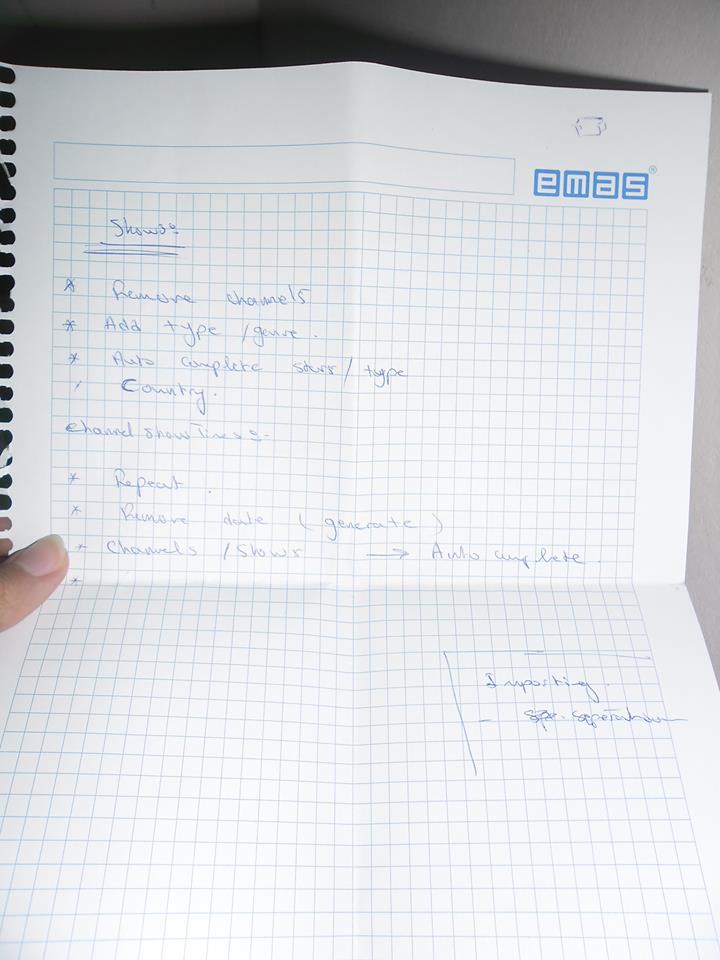 emas®
Shows:
* Remove channels
* Add type / genre.
* Auto complete stars / type
' Country.
Channel show Times:-
* Repeat.
* Remove date (generate)
* Channels / Shows → Auto complete.
*
Importing.
-